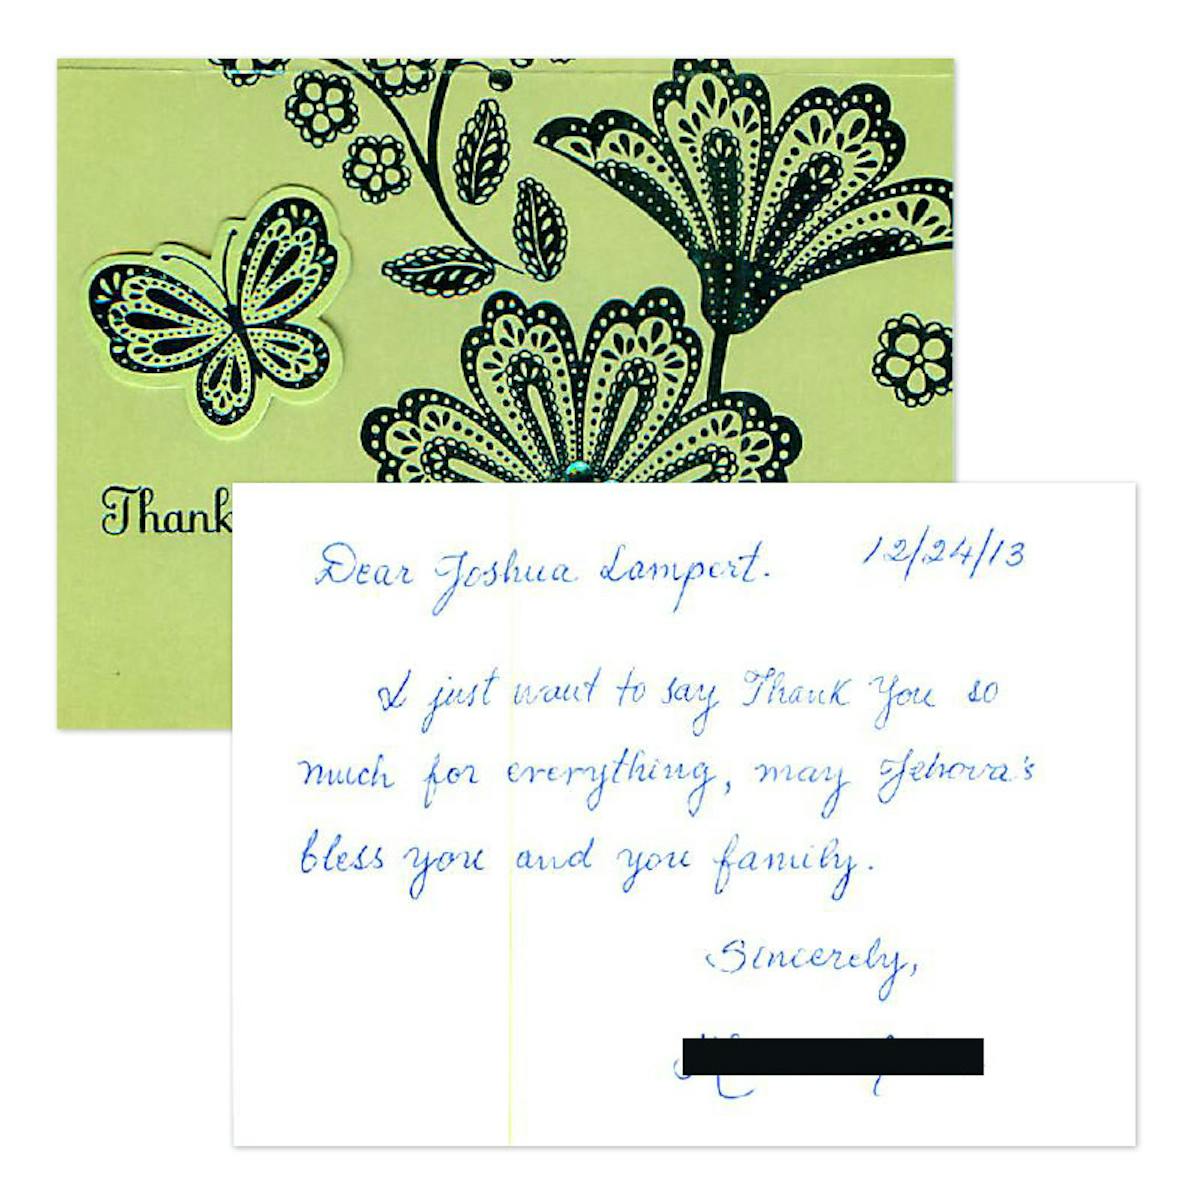 Thank
12/24/13
Dear Joshua Lampert.
I just want to say Thank You so
much for everything, may Jehova's
bless you and you family.
Sincerely,